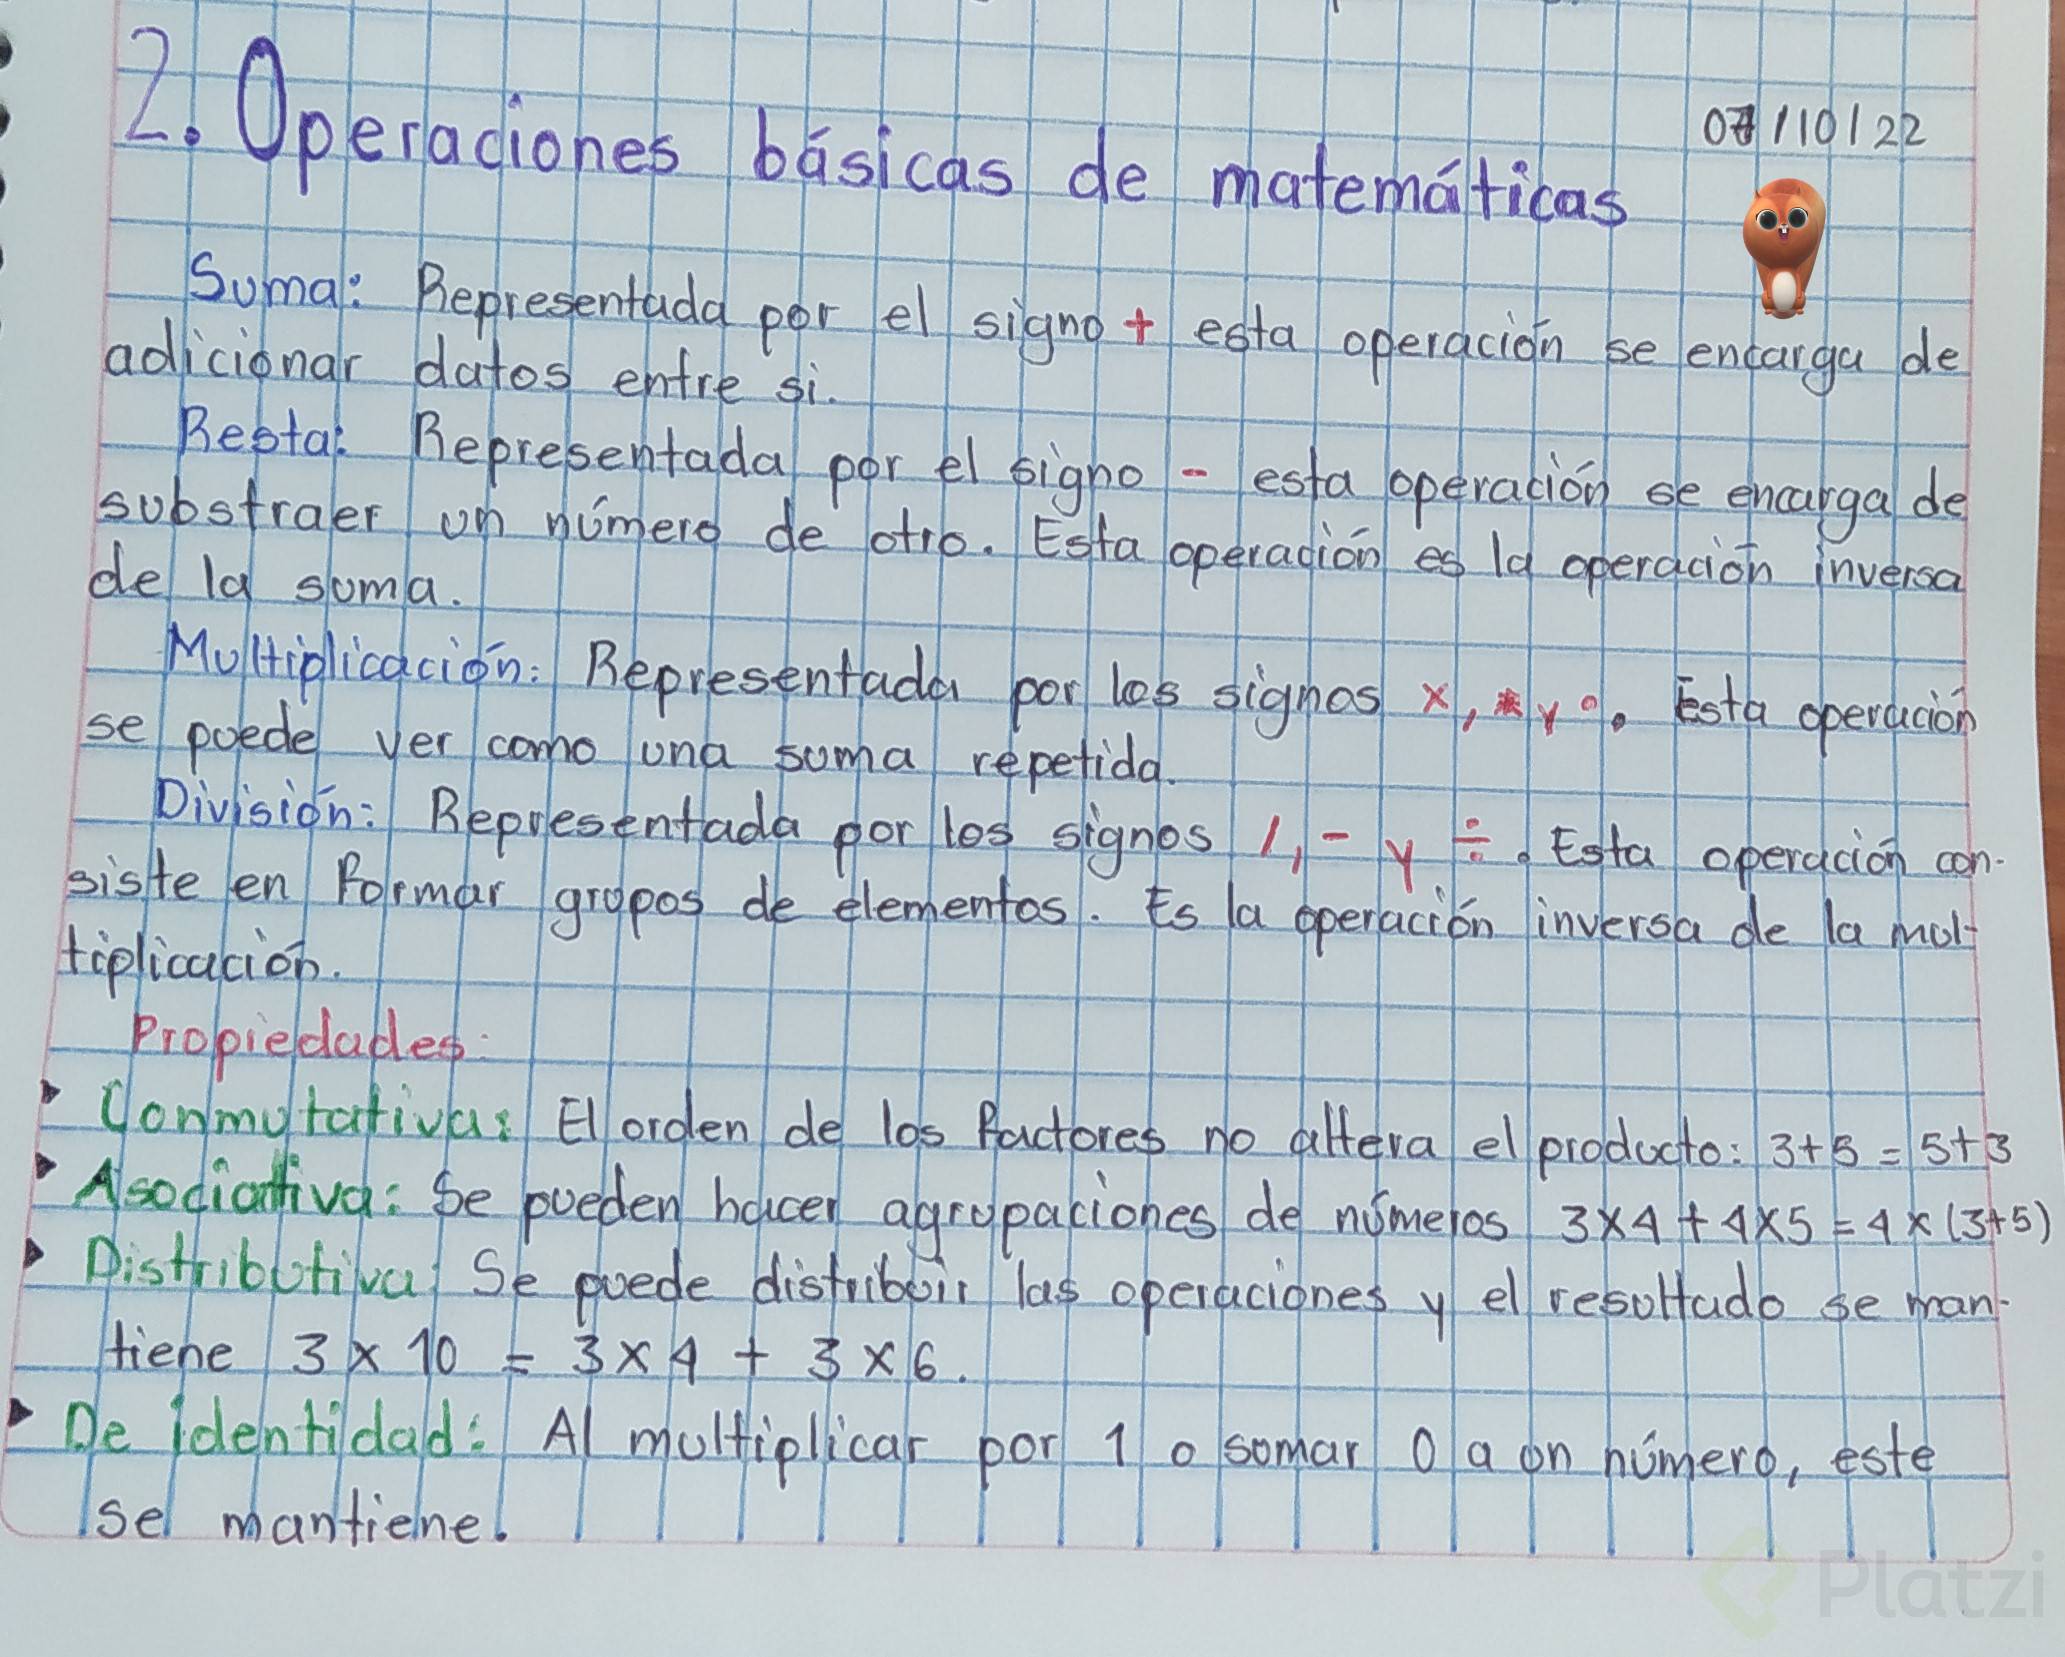 2. Operaciones básicas de matemáticas
07/10/22
Suma: Representada por el signo + esta operación se encarga de
adicionar datos entre si.
Resta: Representada por el signo - esta operación se encarga de
substraer un número de otro. Esta operación es la operación inversa
de la suma.
Multiplicación: Representada por los signos x, * y °. Esta operación
se puede ver como una suma repetida.
División: Representada por los signos /, - y ÷. Esta operación con-
siste en formar grupos de elementos. Es la operación inversa de la mul-
tiplicación.
Propiedades:
Conmutativa: El orden de los factores no altera el producto: 3+5 = 5+3
Asociativa: Se pueden hacer agrupaciones de números 3x4 + 4x5 = 4x(3+5)
Distributiva: Se puede distribuir las operaciones y el resultado se man-
tiene 3 x 10 = 3 x 4 + 3 x 6.
De identidad: Al multiplicar por 1 o sumar 0 a un número, este
se mantiene.
Platzi